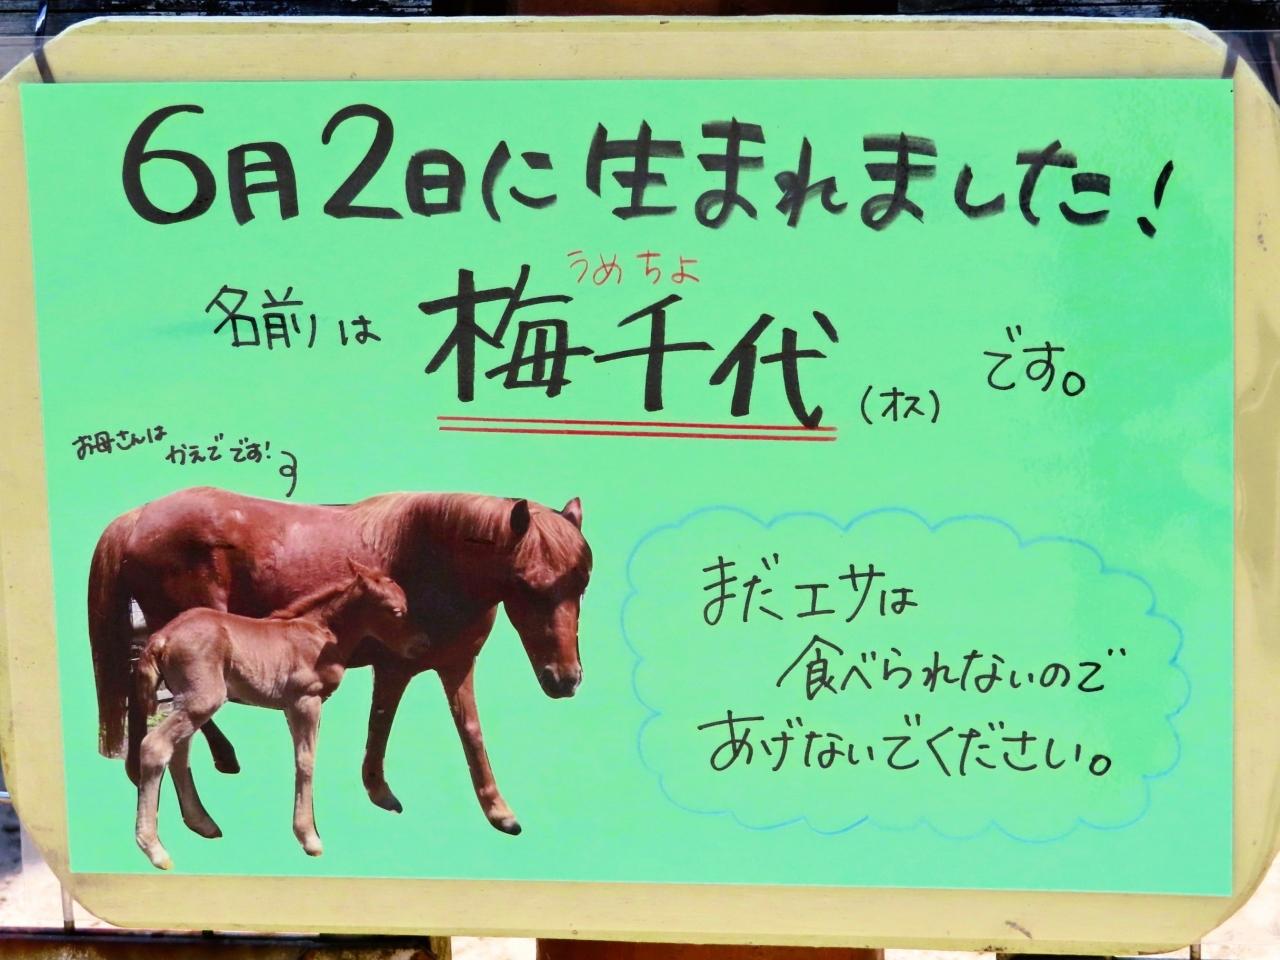 6月2日に生まれました!
うめちよ
名前は 梅千代(オス)です。
お母さんは
かえでです!
まだエサは
食べられないので
あげないでください。